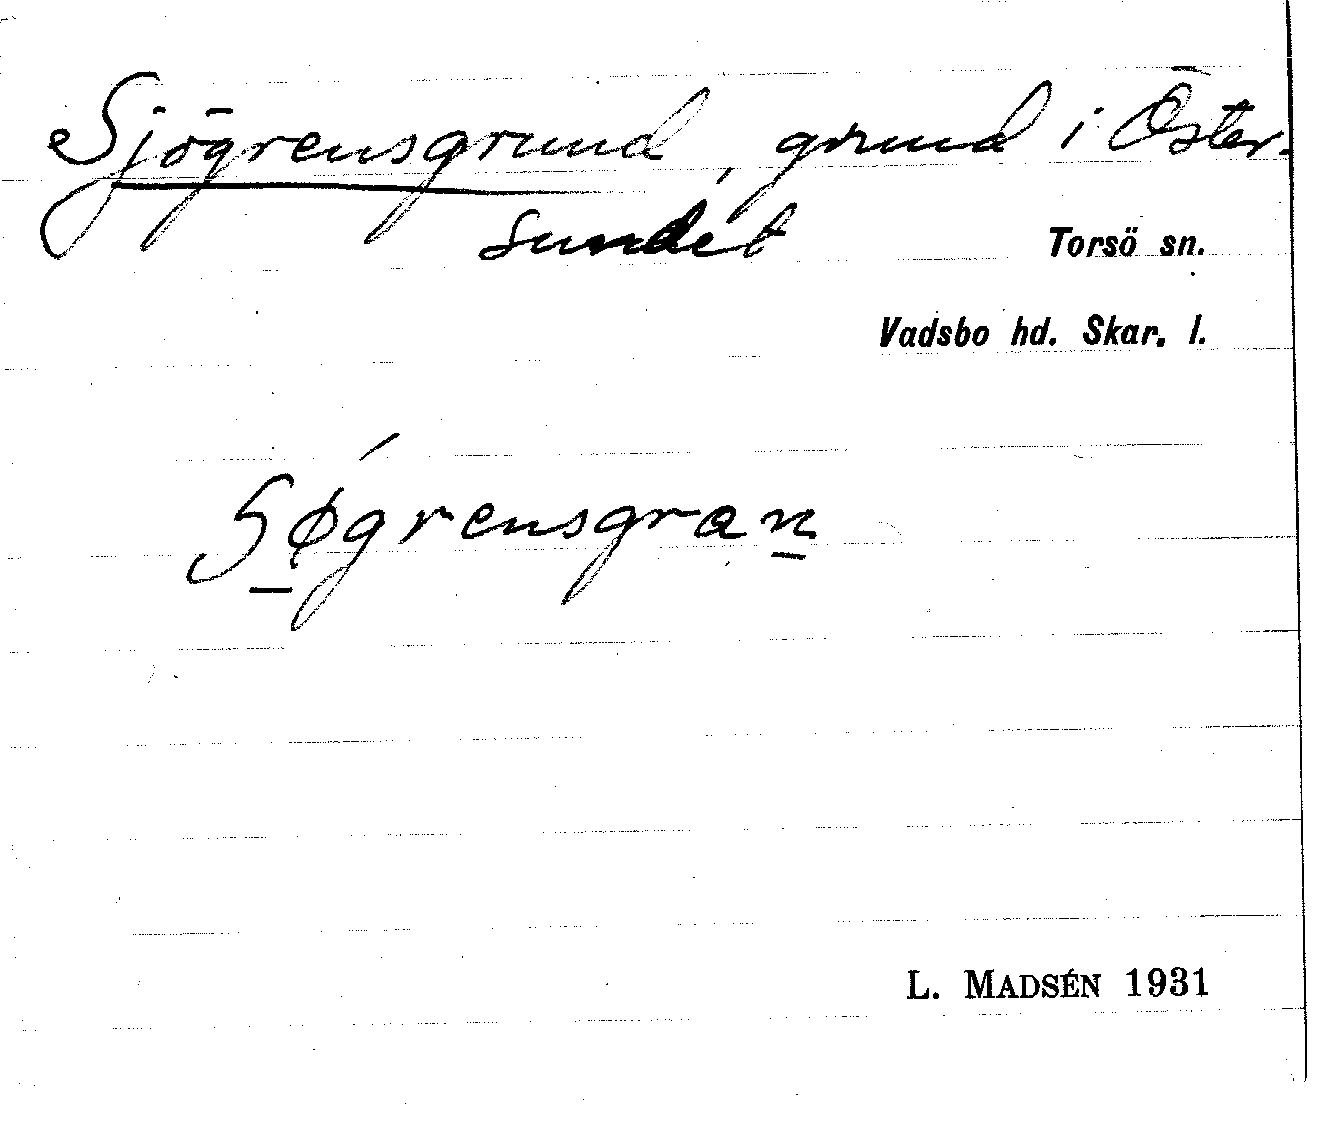 Sjögrensgrund, grund i Öster-
sundet
Torsö sn.
Vadsbo hd. Skar. l.
Søgrensgran
L. MADSÉN 1931